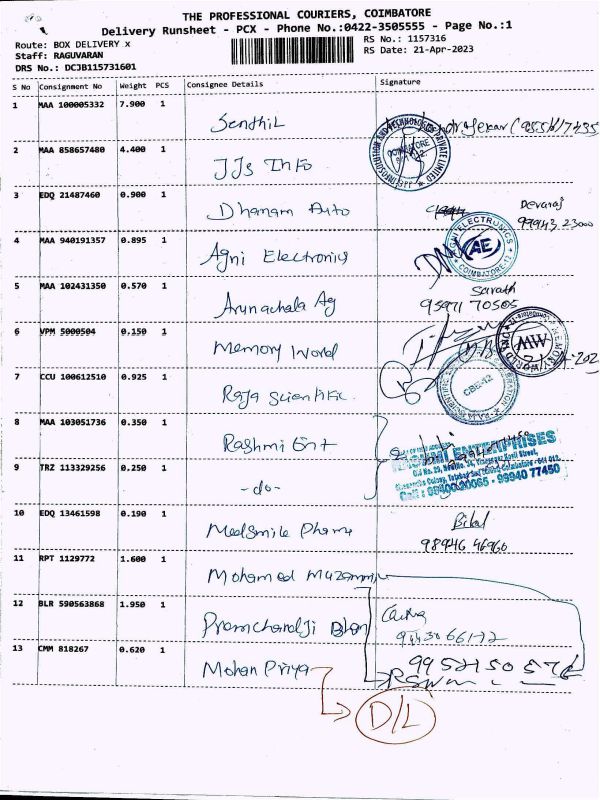 THE PROFESSIONAL COURIERS, COIMBATORE
Delivery Runsheet - PCX - Phone No.:0422-3505555 - Page No.:1
Route: BOX DELIVERY x
RS No.: 1157316
Staff: RAGUVARAN
RS Date: 21-Apr-2023
DRS No.: DCJB115731601
S No Consignment No Weight PCS Consignee Details Signature
1 MAA 100005332 7.900 1 Senthil
2 MAA 858657480 4.400 1 JJs Info
3 EDQ 21487460 0.900 1 Dhanam Auto Devaraj
99943 23000
4 MAA 940191357 0.895 1 Agni Electronics
AGNI ELECTRONICS AE COIMBATORE-12
5 MAA 102431350 0.570 1 Arunachala Ag Sarath
95971 70505
6 VPM 5000504 0.150 1 Memory World
MW
7 CCU 100612510 0.925 1 Raja Scientific
CBE-12
8 MAA 103051736 0.350 1 Rashmi Ent
RASHMI ENTERPRISES
9 TRZ 113329256 0.250 1 -do-
- 99940 77450
10 EDQ 13461598 0.190 1 MedSmile Pharma Bilal
98946 46960
11 RPT 1129772 1.600 1 Mohamed Muzammil
12 BLR 590563868 1.950 1 PremchandJi Bhan
13 CMM 818267 0.620 1 Mohan Priya
D/L